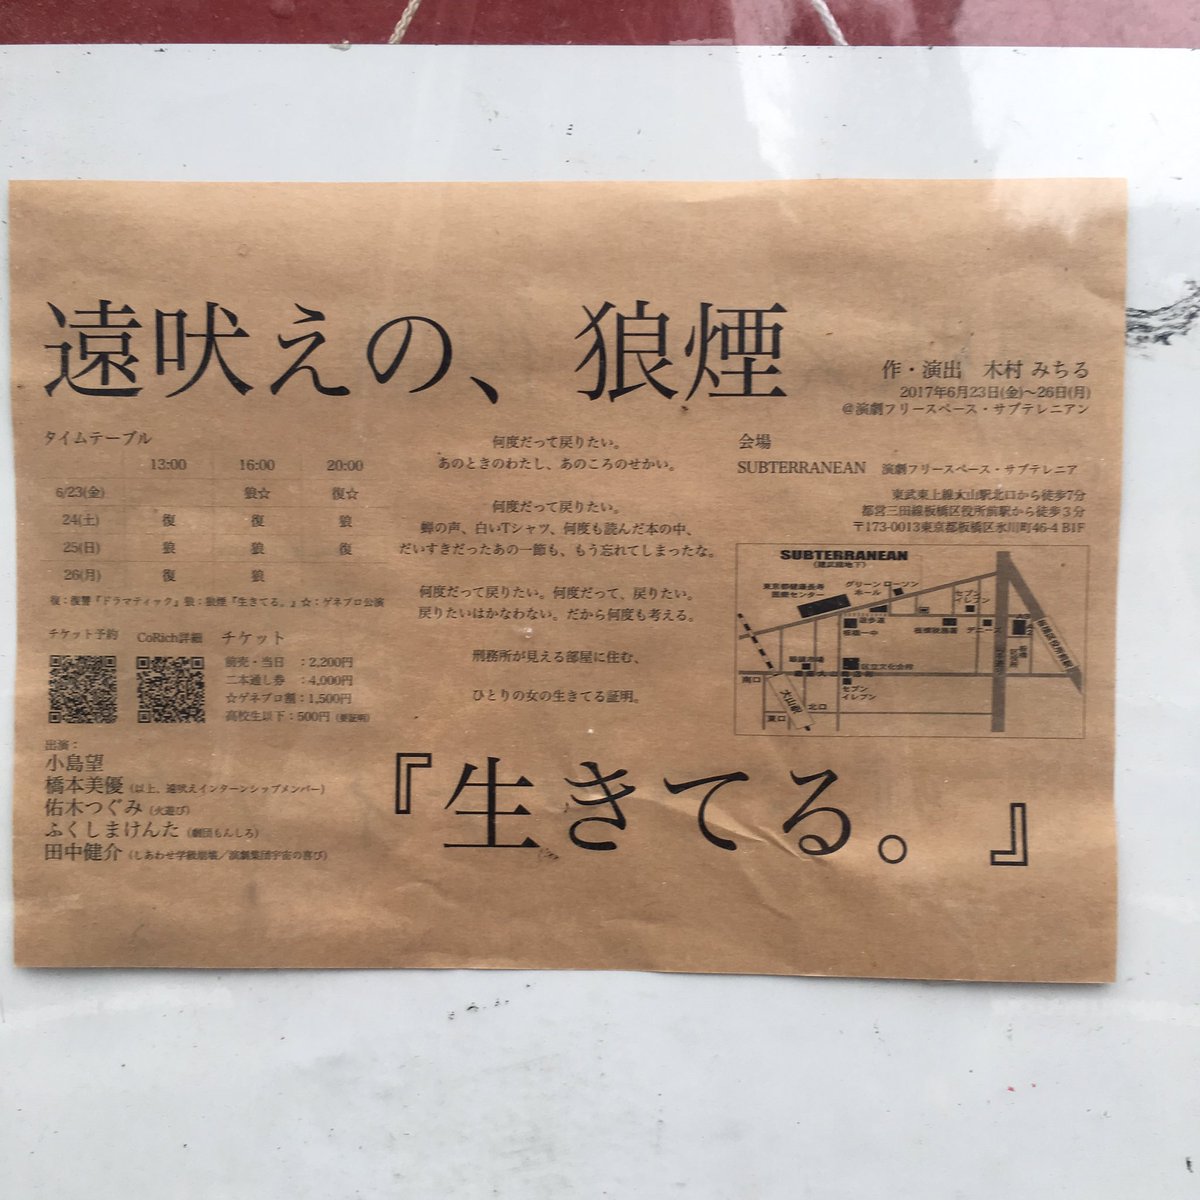 遠吠えの、狼煙
作・演出　木村 みちる
2017年6月23日(金)〜26日(月)
@演劇フリースペース・サブテレニアン
タイムテーブル
13:00 16:00 20:00
6/23(金) 狼☆ 復☆
24(土) 復 復 狼
25(日) 狼 狼 復
26(月) 復 狼
復：復讐『ドラマティック』狼：狼煙『生きてる。』☆：ゲネプロ公演
チケット予約
CoRich詳細
チケット
前売・当日　：2,200円
二本通し券　：4,000円
☆ゲネプロ割：1,500円
高校生以下：500円（要証明）
出演：
小島望
橋本美優（以上、遠吠えインターンシップメンバー）
佑木つぐみ（火遊び）
ふくしまけんた（劇団もんしろ）
田中健介（しあわせ学級崩壊／演劇集団宇宙の喜び）
何度だって戻りたい。
あのときのわたし、あのころのせかい。
何度だって戻りたい。
蝉の声、白いTシャツ、何度も読んだ本の中、
だいすきだったあの一節も、もう忘れてしまったな。
何度だって戻りたい。何度だって、戻りたい。
戻りたいはかなわない。だから何度も考える。
刑務所が見える部屋に住む、
ひとりの女の生きてる証明。
会場
SUBTERRANEAN　演劇フリースペース・サブテレニア
東武東上線大山駅北口から徒歩7分
都営三田線板橋区役所前駅から徒歩３分
〒173-0013東京都板橋区氷川町46-4 B1F
SUBTERRANEAN
東京都健康長寿
医療センター
グリーン
ホール
ローソン
セブン
イレブン
遊歩道
板橋一中
板橋税務署
デニーズ
板橋区役所前駅
区立文化会館
セブン
イレブン
南口
大山駅
北口
東口
『生きてる。』